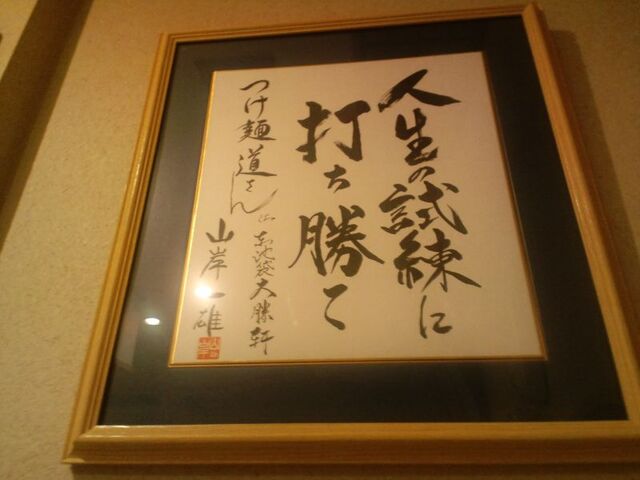 人生の試練に
打ち勝て
つけ麺 道さん江
東池袋大勝軒
山岸一雄